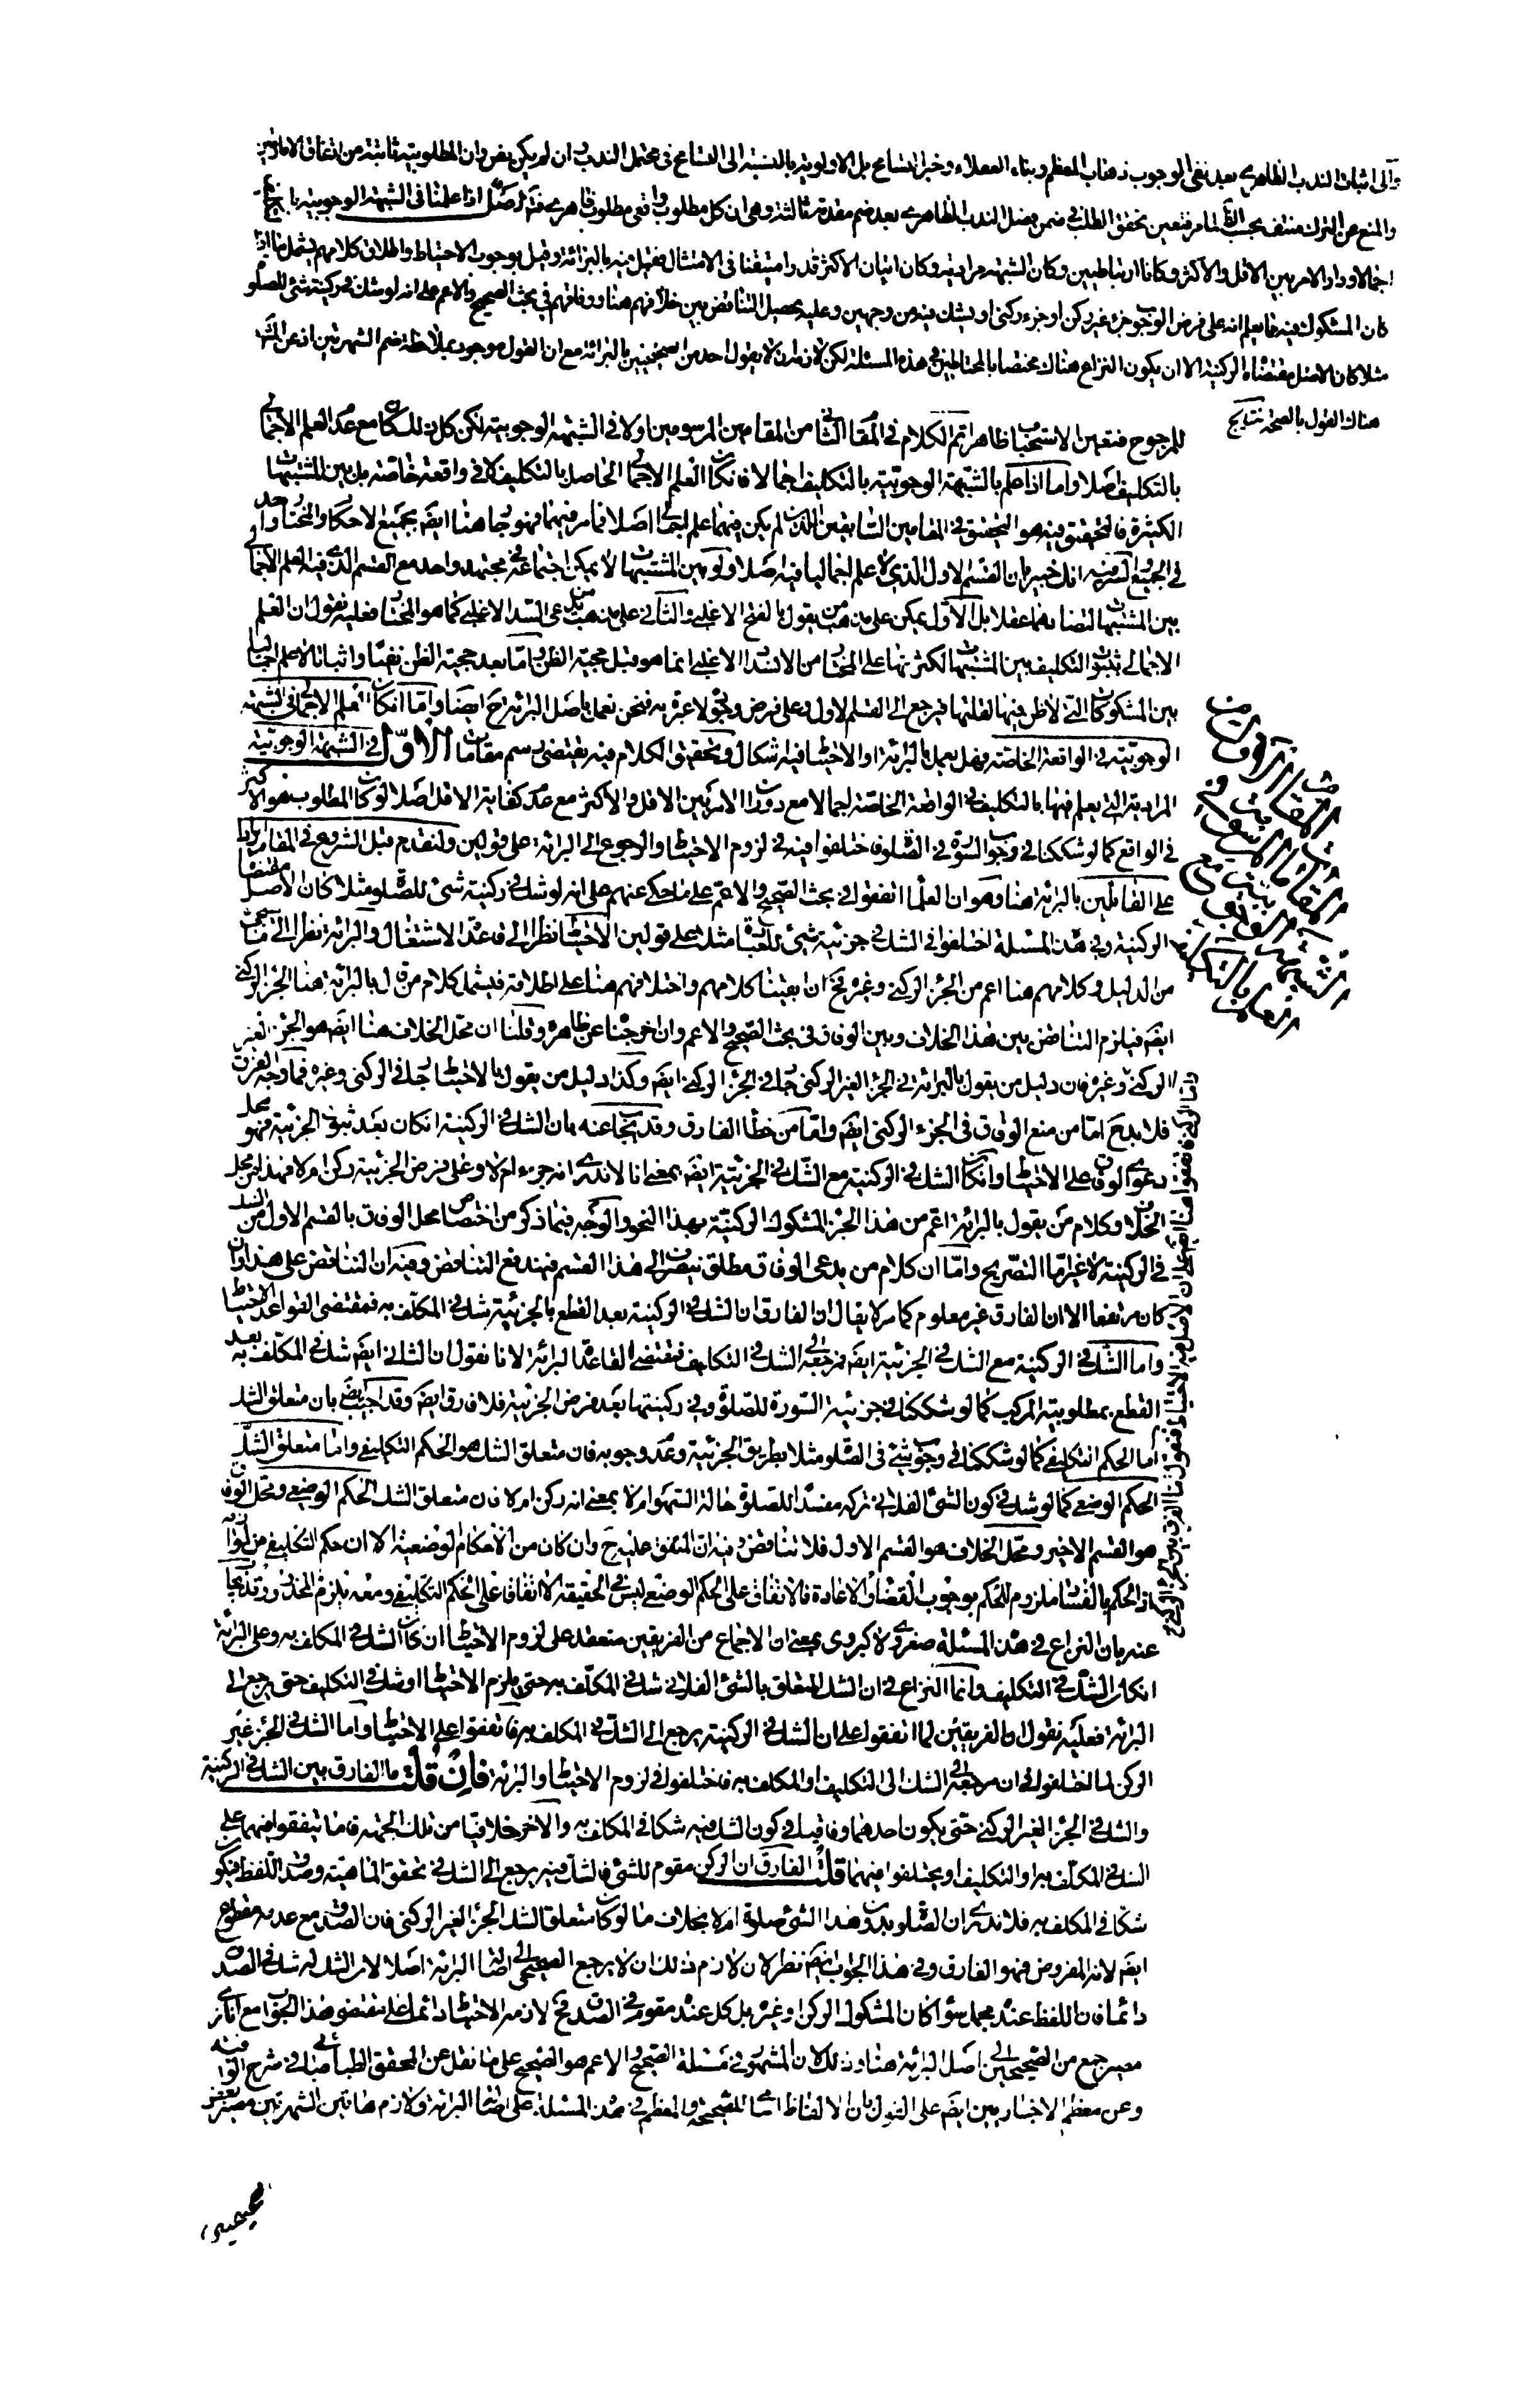 وآلى اثبات الندب الظاهري بعد نفى الوجوب ذهاب المعظم وبناء العقلاء وخبر التسامح بل الاولوية بالنسبة الى التسامح فى محتمل الندب ان لم يكن بفرض ان المطلوبية ثابتة من اتفاق الامارتين
والمنع عن الترك منتف بحسب الظ فتعين تحقق الطلب فى ضمن فصل الندب الظاهرى بعد ضم مقدمة ثالثة وهى ان كل مطلوب واقعى مطلوب ظاهرى فتم اصل اذا علمنا فى الشبهة الوجوبية بالتكليف
اجمالا ودار الامر بين الاقل والاكثر وكانا ارتباطيين وكان الشبهة مرادية وكان اتيان الاكثر قدرا متيقنا فى الامتثال فقيل فيه بالبرائة وقيل بوجوب الاحتياط واطلاق كلامهم يشمل ما اذا
كان المشكوك فيه مما يعلم انه على فرض الوجوب جزء غير ركن او جزء ركنى او يشك فيه من وجهين وعليه يحصل التناقض بين خلافهم هنا ووفاقهم فى بحث الصحيح والاعم على انه لو شك فى ركنية شئ للصلوة
مثلا كان الاصل مقتضاه الركنية الا ان يكون النزاع هناك مختصا بالمحتاطين فى هذه المسئلة لكن لازمه ان لا يقول احد من الصحيحيين بالبرائة مع ان القول موجود بملاحظة ضم الشهرتين اذ عن المش
هناك القول بالصحة
للمرجوح فتعين الاستحباب ظاهرا تم الكلام فى المقام الثانى من المقامين المرسومين اولا فى الشبهة الوجوبية لكن كل ذلك كان مع عدم العلم الاجمالى
بالتكليف اصلا واما اذا علم بالشبهة الوجوبية بالتكليف اجمالا فان كان العلم الاجمالى الحاصل بالتكليف لا فى واقعة خاصة بل بين المشتبهات
الكثيرة فالتحقيق فيه هو التحقيق فى المقامين السابقين اللذين لم يكن فيهما علم اجمالى اصلا فما مر فيهما فهو جار هنا ايضا بجميع الاحكام والمختار واحد
فى الجميع والسر فيه انك خبير بان القسم الاول الذى لا علم اجماليا فيه اصلا ولو بين المشتبهات لا يمكن اجتماعه فى مجتهد واحد مع القسم الذى فيه العلم الاجمالى
بين المشتبهات لتضادهما عقلا بل الاول يمكن على مذهب من يقول بالفتح الاغلبى والثانى على مذهب من يدعى السد الاغلبى كما هو المختار فعليه نقول ان العلم
الاجمالى بثبوت التكليف بين المشتبهات لكثرتها على المختار من الانسداد الاغلبى انما هو قبل حجية الظن واما بعد حجية الظن نفيا واثباتا لا علم اجماليا
بين المشكوكات التى لا ظن فيها لقلتها فيرجع الى القسم الاول وعلى فرض وجوده لا عبرة به فنحن نعمل باصل البرائة ح ايضا واما ان كان العلم الاجمالى فى الشبهة
الوجوبية فى الواقعة الخاصة فهل يعمل بالبرائة او الاحتياط فيه اشكال وتحقيق الكلام فيه يقتضى رسم مقامات الاول فى الشبهة الوجوبية
المرادية التى يعلم فيها بالتكليف فى الواقعة الخاصة اجمالا مع دوران الامر بين الاقل والاكثر مع عدم كفاية الاقل اصلا لو كان المطلوب هو الاكثر
فى الواقع كما لو شككنا فى وجوب السورة فى الصلوة فاختلفوا فيه فى لزوم الاحتياط والرجوع الى البرائة على قولين ولنقدم قبل الشروع فى المقام ايرادا
على القائلين بالبرائة هنا وهو ان العلماء اتفقوا فى بحث الصحيح والاعم على ما حكى عنهم على انه لو شك فى ركنية شئ للصلوة مثلا كان الاصل مقتضاه
الركنية وفى هذه المسئلة اختلفوا فى الشك فى جزئية شئ للعبادة مثلا على قولين الاحتياط نظرا الى قاعدة الاشتغال والبرائة نظرا الى ما سيجئ
من الدليل وكلامهم هنا اعم من الجزء الركنى وغيره فح ان بقينا كلامهم واختلافهم هنا على اطلاقه فيشمل كلام من قال بالبرائة هنا الجزء الركنى
ايضا فيلزم التناقض بين هذا الخلاف وبين الوفاق فى بحث الصحيح والاعم وان اخرجنا عن ظاهره وقلنا ان محل الخلاف هنا ايضا هو الجزء الغير
الركنى وغيره فان دليل من يقول بالبرائة فى الجزء الغير الركنى جار فى الجزء الركنى ايضا وكذا دليل من يقول بالاحتياط جار فى الركنى وغيره فما وجه الفرق
فلا بد ح اما من منع الوفاق فى الجزء الركنى ايضا واما من خطاء الفارق وقد يجاب عنه بان الشك فى الركنية ان كان بعد ثبوت الجزئية فهو محل
دعوى الوفاق على الاحتياط وان كان الشك فى الركنية مع الشك فى الجزئية ايضا بمعنى انا لا ندرى انه جزء ام لا وعلى فرض الجزئية ركن ام لا فهذا من محل
الخلاف وكلام من يقول بالبرائة اعم من هذا الجزء المشكوك الركنية بهذا النحو والوجه فيما ذكر من اختصاص محل الوفاق بالقسم الاول من الشك
فى الركنية لا غير اما التصريح واما ان كلام من يدعى الوفاق مطلق ينصرف الى هذا القسم فيندفع التناقض وفيه ان التناقض على هذا وان
كان مرتفعا الا ان الفارق غير معلوم كما مر لا يقال ان الفارق ان الشك فى الركنية بعد القطع بالجزئية شك فى المكلف به فمقتضى القواعد الاحتياط
واما الشك فى الركنية مع الشك فى الجزئية ايضا فمرجعه الى الشك فى التكليف فمقتضى القاعدة البرائة لانا نقول ان الثانى ايضا شك فى المكلف به بعد
القطع بمطلوبية المركب كما لو شككنا فى جزئية السورة للصلوة وفى ركنيتها بعد فرض الجزئية فلا فرق ايضا وقد اجيب ايضا بان متعلق الشك
اما الحكم التكليفى كما لو شككنا فى وجوب شئ فى الصلوة مثلا بطريق الجزئية وعدم وجوبه فان متعلق الشك هو الحكم التكليفى واما متعلق الشك
الحكم الوضعى كما لو شك فى كون الشئ الفلانى تركه مفسدا للصلوة حالة السهو ام لا بمعنى انه ركن ام لا فان متعلق الشك الحكم الوضعى ومحل الوفاق
هو القسم الاخير ومحل الخلاف هو القسم الاول فلا تناقض وفيه ان المتفق عليه ح وان كان من الاحكام الوضعية الا ان حكم التكليفى من لوازمه
اذ الحكم بالفساد ملزوم للحكم بوجوب القضاء والاعادة فالاتفاق على الحكم الوضعى ليس فى الحقيقة الا اتفاقا على الحكم التكليفى ومعه يلزم المحذور وقد يجاب
عنه بان النزاع فى هذه المسئلة صغروى لا كبروى بمعنى ان الاجماع من الفريقين منعقد على لزوم الاحتياط ان كان الشك فى المكلف به وعلى البرائة
ان كان الشك فى التكليف وانما النزاع فى ان الشك المتعلق بالشئ الفلانى شك فى المكلف به حتى يلزم الاحتياط او شك فى التكليف حتى يرجع الى
البرائة فعليه نقول ان الفريقين لما اتفقوا على ان الشك فى الركنية يرجع الى الشك فى المكلف به فاتفقوا على الاحتياط واما الشك فى الجزء غير
الركن لما اختلفوا فى ان مرجعه الى الشك الى التكليف او المكلف به فاختلفوا فى لزوم الاحتياط والبرائة فان قلت ما الفارق بين الشك فى الركنية
والشك فى الجزء الغير الركنى حتى يكون احدهما وفاقيا فى كون الشك فيه شكا فى المكلف به والاخر خلافيا من تلك الجهة فاما يتفقوا فيهما على
الشك فى المكلف به او التكليف او يختلفوا فيهما قلت الفارق ان الركن مقوم للشئ فالشك فيه يرجع الى الشك فى تحقق الماهية وصدق اللفظ فيكون
شكا فى المكلف به فلا ندرى ان الصلوة بدون هذا الشئ صلوة ام لا بخلاف ما لو كان متعلق الشك الجزء الغير الركنى فان الصدق مع عدمه مقطوع
ايضا لانه المفروض فهو الفارق وفى هذا الجواب ايضا نظر لان لازم ذلك ان لا يرجع الصحيحى الى اصالة البرائة اصلا لان الشك له شك فى الصدق
دائما فان اللفظ عنده مجمل سواء كان المشكوك الركن او غيره بل كل عنده مقوم فى الصدق فح لازمه الاحتياط دائما على مقتضى هذا الجواب مع انا نرى
مصير جمع من الصحيحيين الى اصل البرائة هنا وذلك لان المشهور فى مسئلة الصحيح والاعم هو الصحيح على ما نقل عن المحقق الطباطبائى فى شرح الوافية
وعن معظم الاخباريين ايضا على القول بان الالفاظ اسامى للصحيحة والمعظم فى هذه المسئلة على اصالة البرائة ولازم هاتين الشهرتين مصير بعض